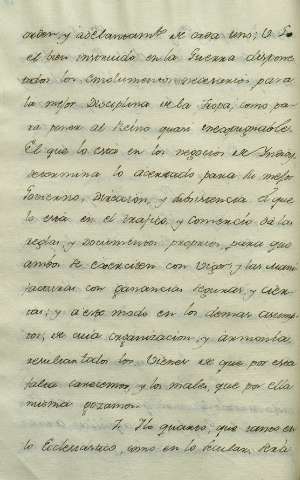 orden, y adelantamto de cada uno;
el bien instruido en la Guerra dispone
todos los emolumentos necesarios para
la mejor Disciplina de la Tropa, como pa
ra poner al Reino quasi inexpugnable.
El que lo está en los negocios de Indias,
determina lo acertado para su mejor
Govierno, Direccion, y subsistencia. el que
lo está en el trafico, y Comercio da las
reglas, y documentos propios, para que
ambos se exerciten con vigor; y las Manu
facturas con ganancias seguras, y cier
tas; y a este modo en los demas asump
tos; de cuia organizacion, y armonia
resultan todos los Vienes de que por esta
falta carecemos, y los males, que por ella
misma gozamos.
quanto, que vamos en
lo Ecclesiastico, como en lo Secular,